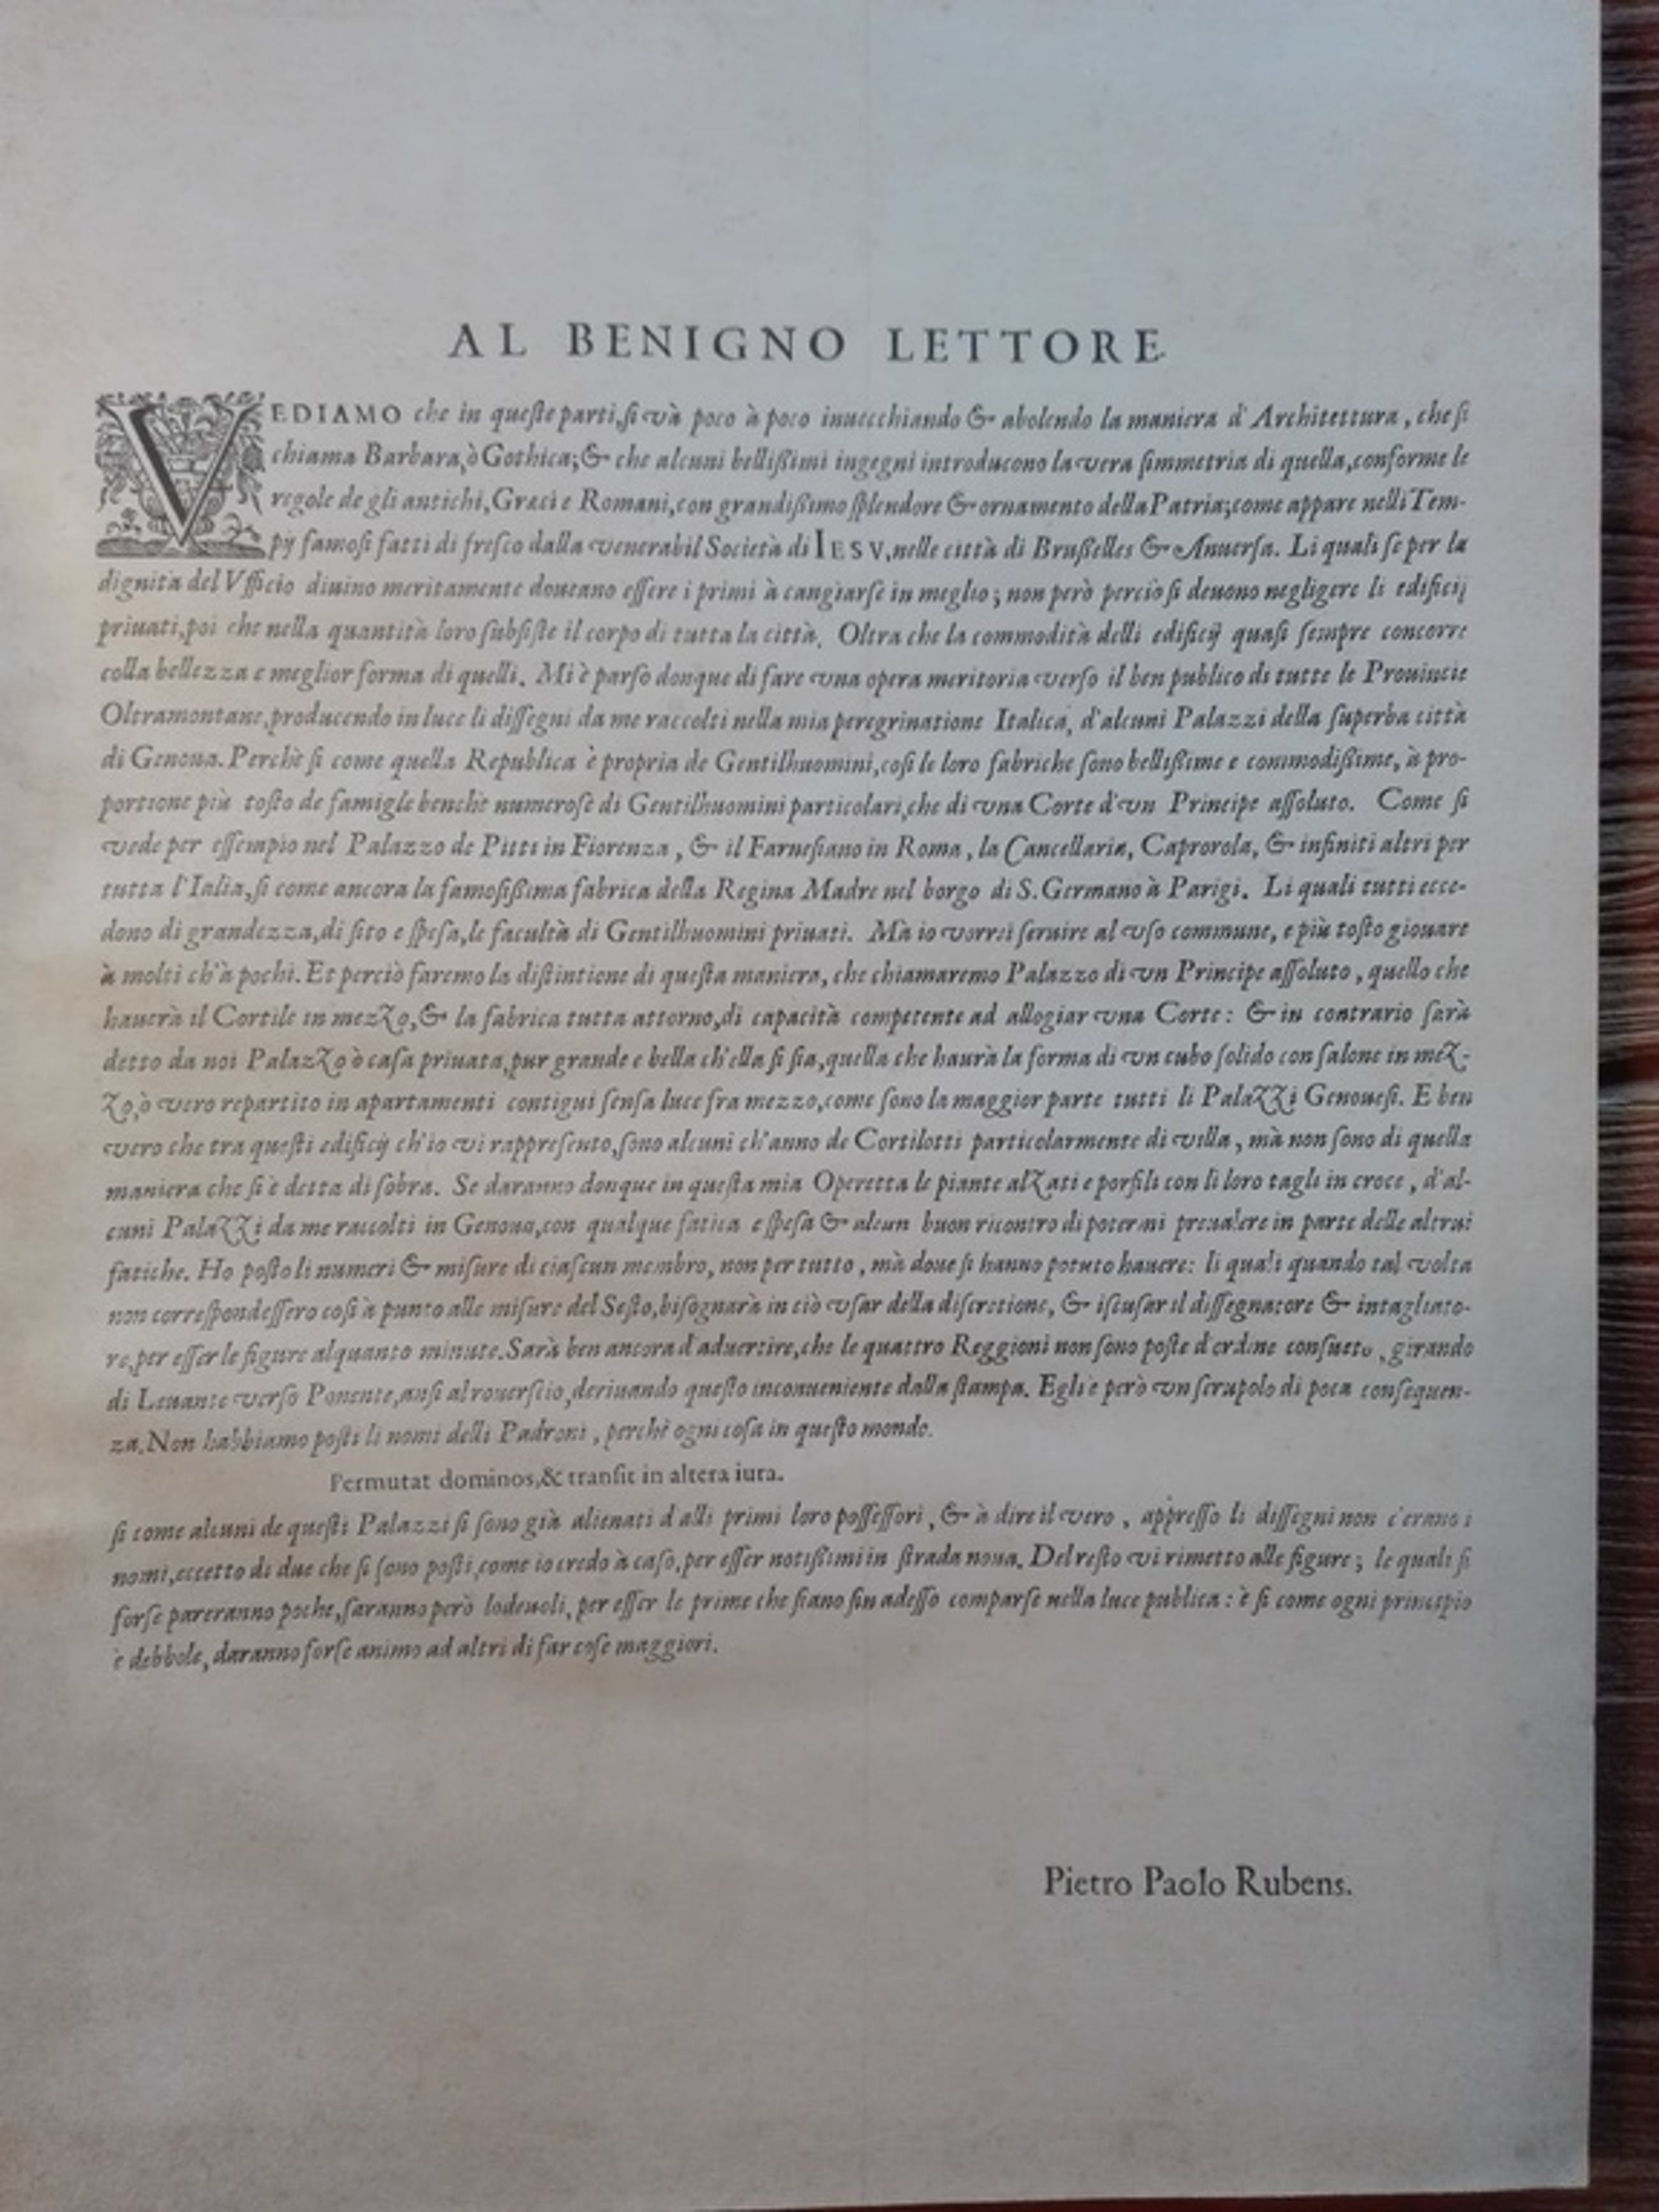 AL BENIGNO LETTORE
VEDIAMO che in queſte parti,ſi và poco à poco inuecchiando & abolendo la maniera d'Architettura, che ſi
chiama Barbara,ò Gothica;& che alcuni belliſſimi ingegni introducono la vera ſimmetria di quella,conforme le
regole de gli antichi,Græci e Romani,con grandiſſimo ſplendore & ornamento della Patria;come appare nelli Tem-
pij famoſi fatti di freſco dalla venerabil Società di IESV,nelle città di Bruſſelles & Anuerſa. Li quali ſe per la
dignità del Vfficio diuino meritamente doueano eſſere i primi à cangiarſe in meglio; non però perciò ſi deuono negligere li edificij
priuati,poi che nella quantità loro ſubſiſte il corpo di tutta la città. Oltra che la commodità delli edificij quaſi ſempre concorre
colla bellezza e meglior forma di quelli. Mi è parſo donque di fare vna opera meritoria verſo il ben publico di tutte le Prouincie
Oltramontane,producendo in luce li diſſegni da me raccolti nella mia peregrinatione Italica, d'alcuni Palazzi della ſuperba città
di Genoua. Perchè ſi come quella Republica è propria de Gentilhuomini,coſi le loro fabriche ſono belliſſime e commodiſſime, à pro-
portione più toſto de famigle benchè numeroſe di Gentilhuomini particolari,che di vna Corte d'vn Principe aſſoluto. Come ſi
vede per eſſempio nel Palazzo de Pitti in Fiorenza, & il Farneſiano in Roma, la Cancellaria, Caprorola, & infiniti altri per
tutta l'Italia,ſi come ancora la famoſiſſima fabrica della Regina Madre nel borgo di S. Germano à Parigi. Li quali tutti ecce-
dono di grandezza,di ſito e ſpeſa,le facultà di Gentilhuomini priuati. Mà io vorrei ſeruire al vſo commune, e più toſto giouare
à molti ch'à pochi. Et perciò faremo la diſtintione di queſta maniera, che chiamaremo Palazzo di vn Principe aſſoluto, quello che
hauerà il Cortile in mezzo,& la fabrica tutta attorno,di capacità competente ad allogiar vna Corte: & in contrario ſarà
detto da noi Palazzo ò caſa priuata,pur grande e bella ch'ella ſi ſia,quella che haurà la forma di vn cubo ſolido con ſalone in mez-
zo,ò vero repartito in apartamenti contigui ſenſa luce fra mezzo,come ſono la maggior parte tutti li Palazzi Genoueſi. E ben
vero che tra queſti edificij ch'io vi rappreſento,ſono alcuni ch'anno de Cortilotti particolarmente di villa, mà non ſono di quella
maniera che ſi è detta di ſobra. Se daranno donque in queſta mia Operetta le piante alzati e porfili con li loro tagli in croce, d'al-
cuni Palazzi da me raccolti in Genoua,con qualque fatica e ſpeſa & alcun buon ricontro di potermi preualere in parte delle altrui
fatiche. Ho poſto li numeri & miſure di ciaſcun membro, non per tutto, mà doue ſi hanno potuto hauere: li quali quando tal volta
non correſpondeſſero coſi à punto alle miſure del Seſto,biſognarà in ciò vſar della diſcretione, & iſcuſar il diſſegnatore & intagliato-
re,per eſſer le figure alquanto minute.Sarà ben ancora d'aduertire,che le quattro Reggioni non ſono poſte d'ordine conſueto, girando
di Leuante verſo Ponente,anſi al rouerſcio,deriuando queſto inconueniente dalla ſtampa. Egli è però vn ſcrupolo di poca conſequen-
za.Non habbiamo poſti li nomi delli Padroni, perchè ogni coſa in queſto mondo.
Permutat dominos,& tranſit in altera iura.
ſi come alcuni de queſti Palazzi ſi ſono già alienati d'alli primi loro poſſeſſori, & à dire il vero, appreſſo li diſſegni non c'erano i
nomi,eccetto di due che ſi ſono poſti,come io credo à caſo,per eſſer notiſſimi in ſtrada noua. Del reſto vi rimetto alle figure; le quali ſi
forſe pareranno poche,ſaranno però lodeuoli, per eſſer le prime che ſiano ſin adeſſo comparſe nella luce publica: è ſi come ogni principio
è debbole, daranno forſe animo ad altri di far coſe maggiori.
Pietro Paolo Rubens.